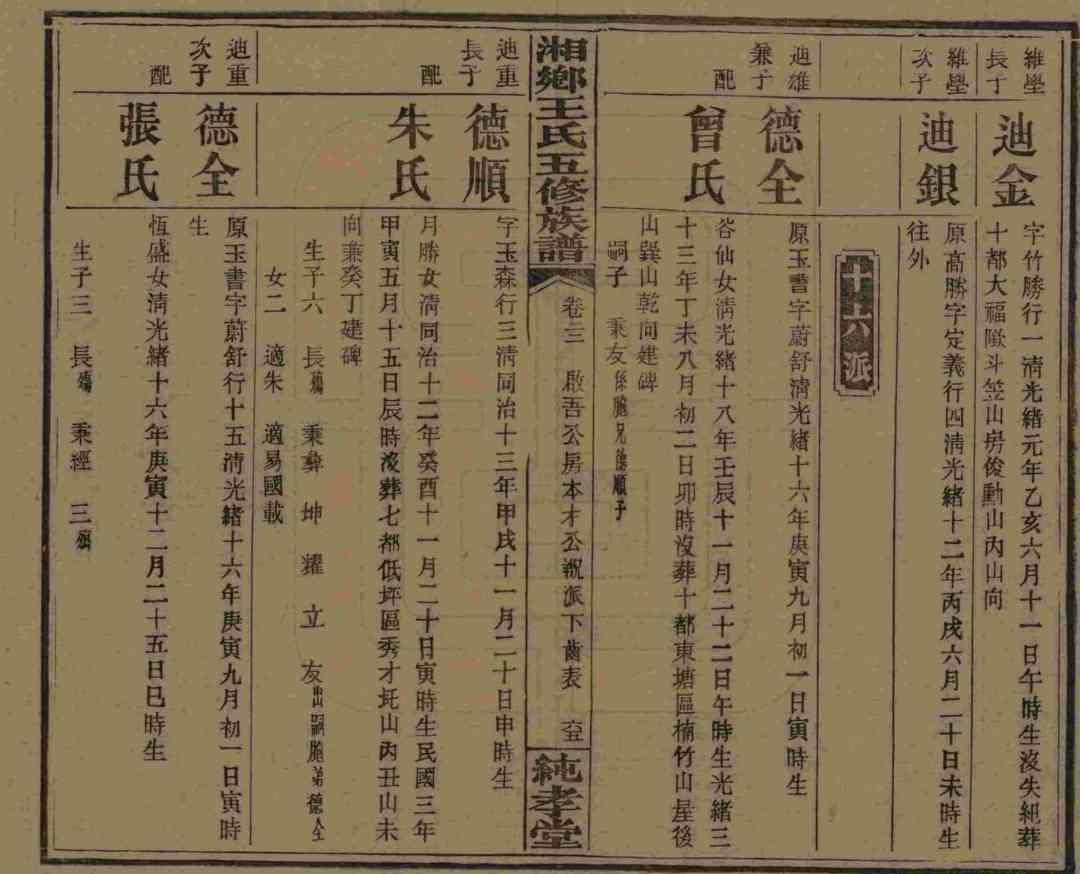 維學
長子
迪金
字竹勝行一清光緒元年乙亥六月十一日午時生沒失紀葬
十都大福歐斗笠山房俊勳山丙山向
維學
次子
迪銀
原高勝字定義行四清光緒十二年丙戌六月二十日未時生
往外
十六派
迪雄
兼子
德全
原玉書字蔚舒清光緒十六年庚寅九月初一日寅時生
配
曾氏
谷仙女清光緒十八年壬辰十一月二十二日午時生光緒三
十三年丁未八月初二日卯時沒葬十都東塘區楠竹山屋後
山巽山乾向建碑
嗣子 秉友係胞兄德順子
湘鄉王氏五修族譜
卷三 啟吾公房本才公祝派下齒表
純孝堂
迪重
長子
德順
字玉森行三清同治十三年甲戌十一月二十日申時生
配
朱氏
月勝女清同治十二年癸酉十一月二十日寅時生民國三年
甲寅五月十五日辰時沒葬七都低坪區秀才坵山丙丑山未
向兼癸丁建碑
生子六 長殤 秉彝 坤 耀 立 友出嗣胞弟德全
女二 適朱 適易國載
迪重
次子
德全
原玉書字蔚舒行十五清光緒十六年庚寅九月初一日寅時
生
配
張氏
恆盛女清光緒十六年庚寅十二月二十五日巳時生
生子三 長殤 秉經 三殤